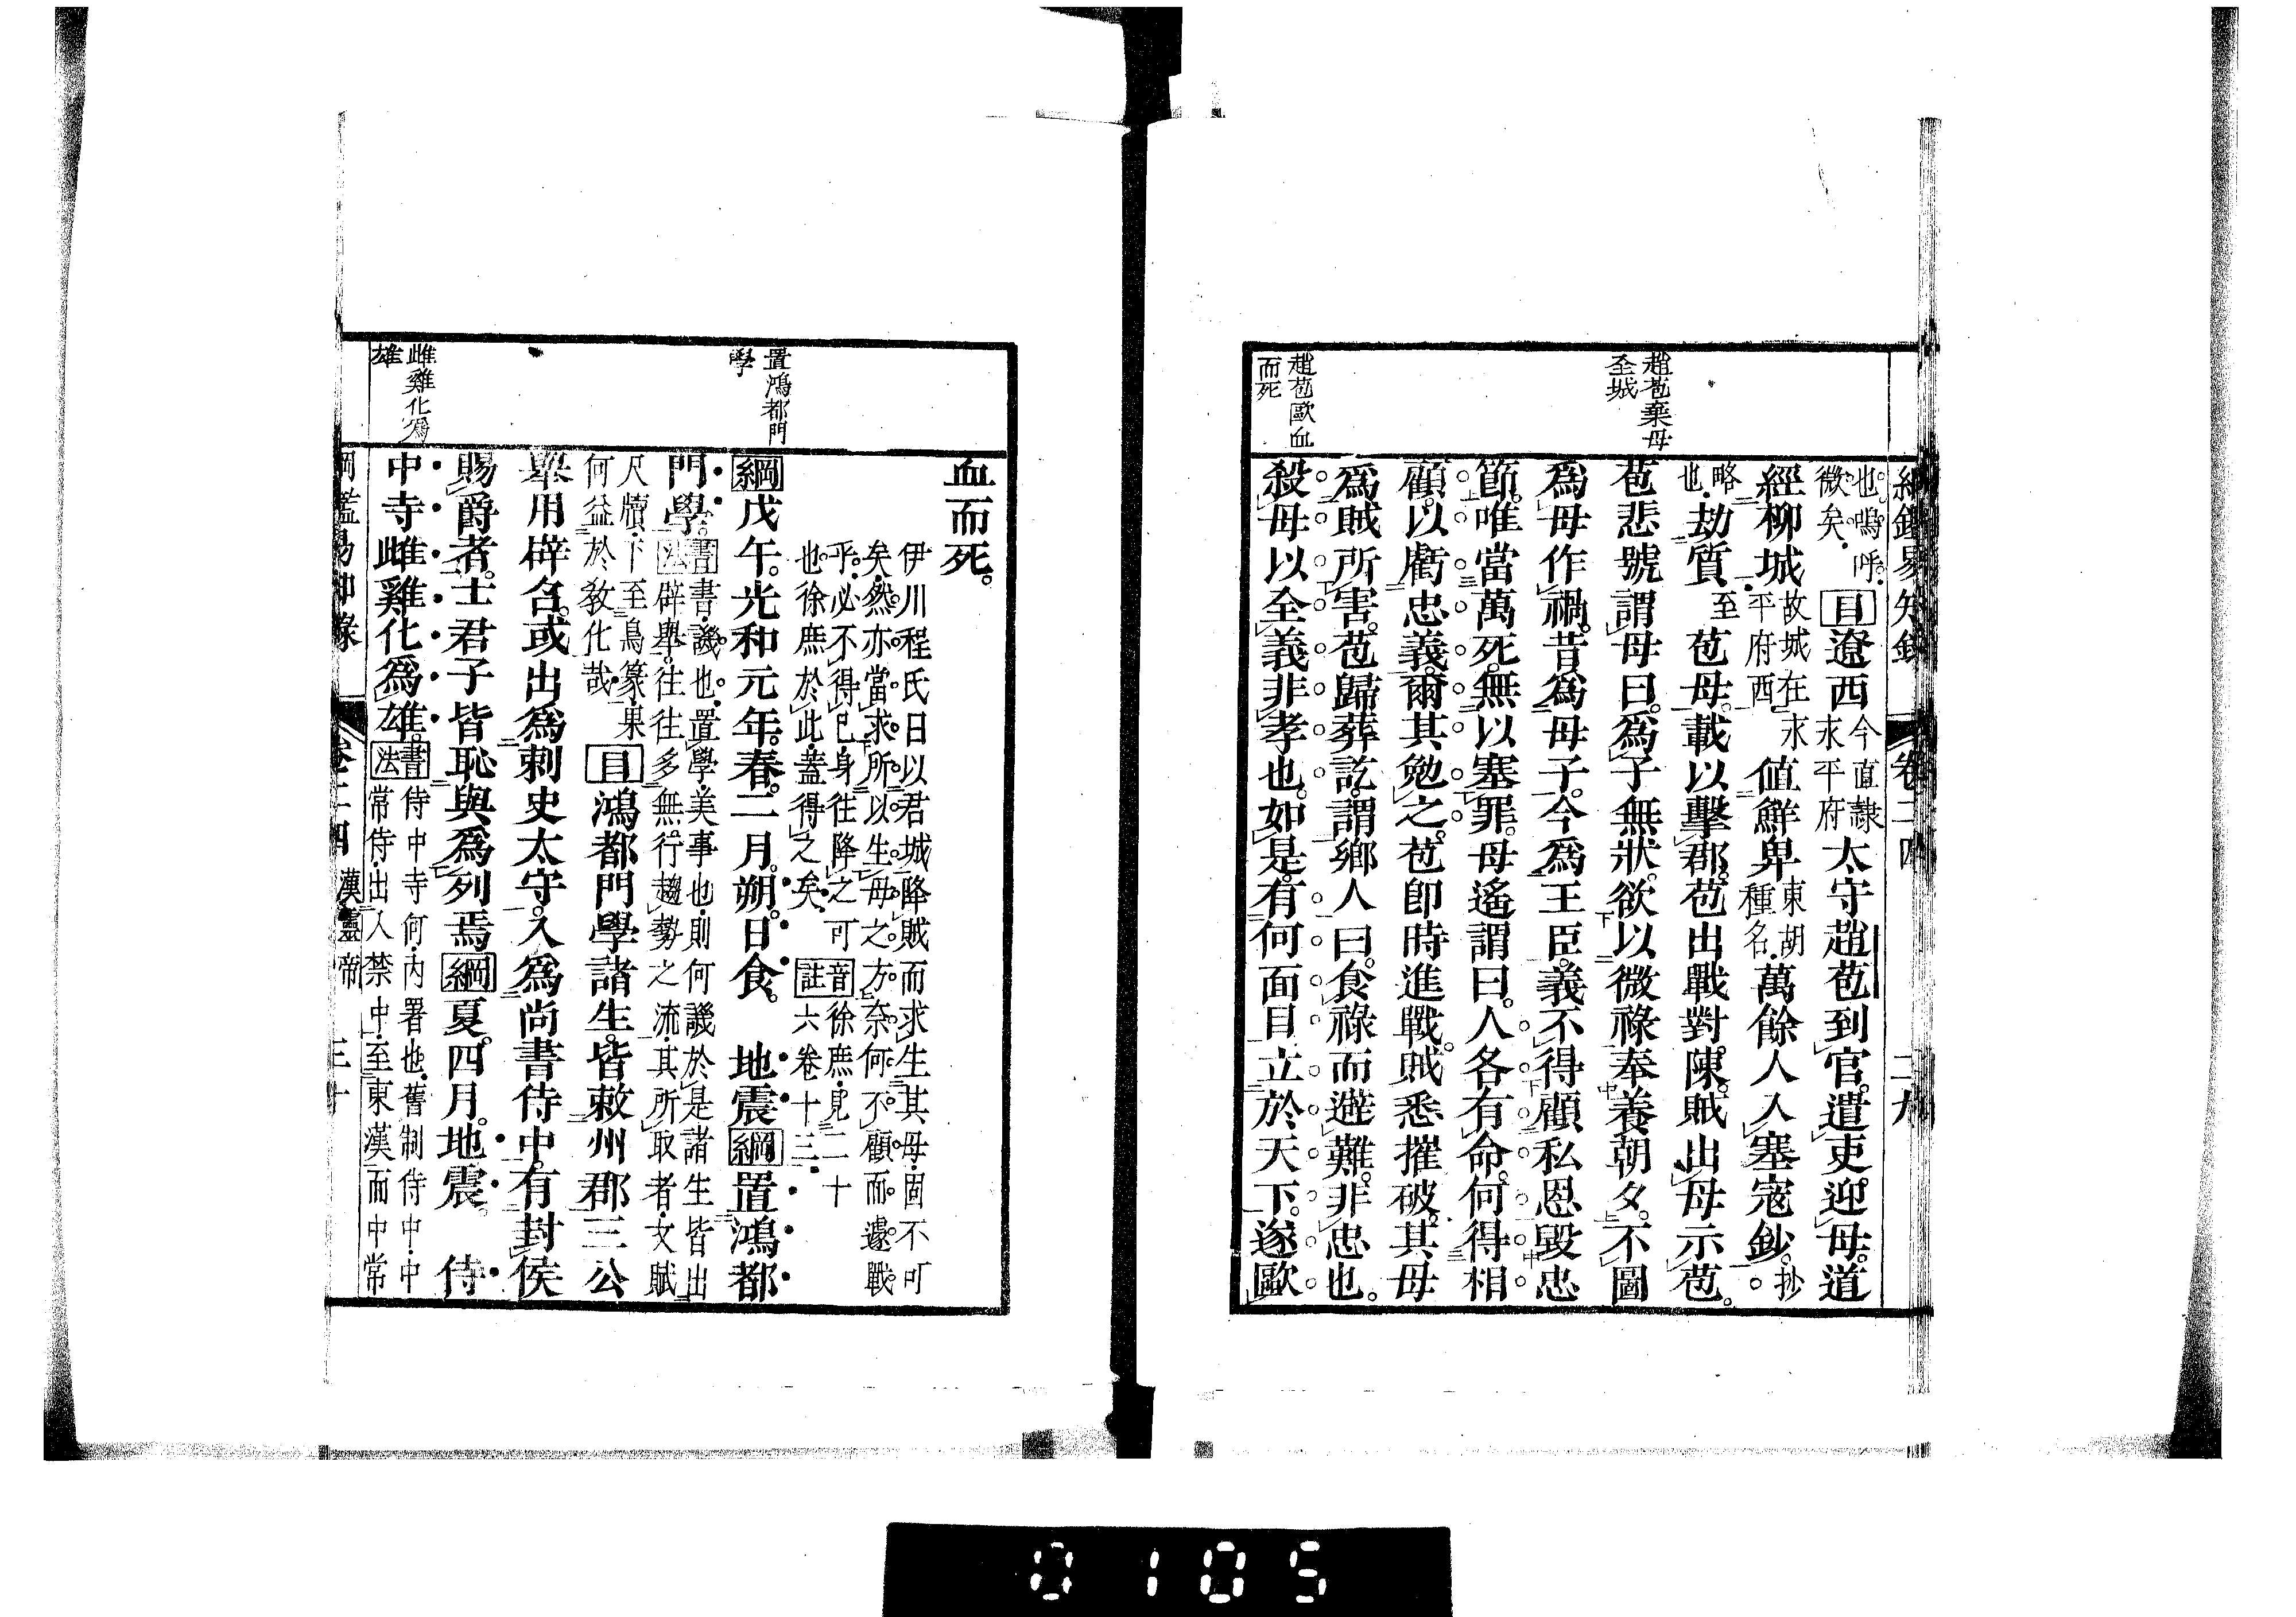 綱鑑易知録 卷二四 二九
趙苞棄母
全城
趙苞歐血
而死
也。嗚呼。
微矣。
目遼西今直隸
永平府太守趙苞到官。遣吏迎母。道
經柳城故城在永
平府西。值鮮卑東胡
種名。萬餘人入塞寇鈔。抄
略
也。劫質至苞母。載以擊郡。苞出戰對陳。賊出母示苞。
苞悲號謂母曰。爲子無狀。欲以微祿奉養朝夕。不圖
爲母作禍。昔爲母子。今爲王臣。義不得顧私恩毀忠
節。唯當萬死。無以塞罪。母遙謂曰。人各有命。何得相
顧。以虧忠義。爾其勉之。苞卽時進戰。賊悉摧破。其母
爲賊所害。苞歸葬訖。謂鄉人曰。食祿而避難。非忠也。
殺母以全義。非孝也。如是。有何面目立於天下。遂歐
血而死。
置鴻都門
學
雌雞化爲
雄
伊川程氏曰以君城降賊而求生其母。固不可
矣。然亦當求所以生母之方。奈何不顧而遽戰
乎。必不得已身往降之可
也。徐庶於此。蓋得之矣。音註徐庶。見二十
六卷十三。
綱戊午。光和元年。春。二月。朔。日食。 地震綱置鴻都
門學。書法書。譏也。置學。美事也。則何譏於是諸生皆出
辟舉。往往多無行趨勢之流。其所取者。文賦
尺牘。下至鳥篆。果
何益於敎化哉。目鴻都門學諸生。皆敕州郡三公
舉用辟召。或出爲刺史太守。入爲尚書侍中。有封侯
賜爵者。士君子皆恥與爲列焉綱夏。四月。地震。 侍
中寺雌雞化爲雄。書法侍中寺何。内署也。舊制侍中。中
常侍。出入禁中。至東漢而中常
綱鑑易知録 卷二四 漢靈帝 三十
0105